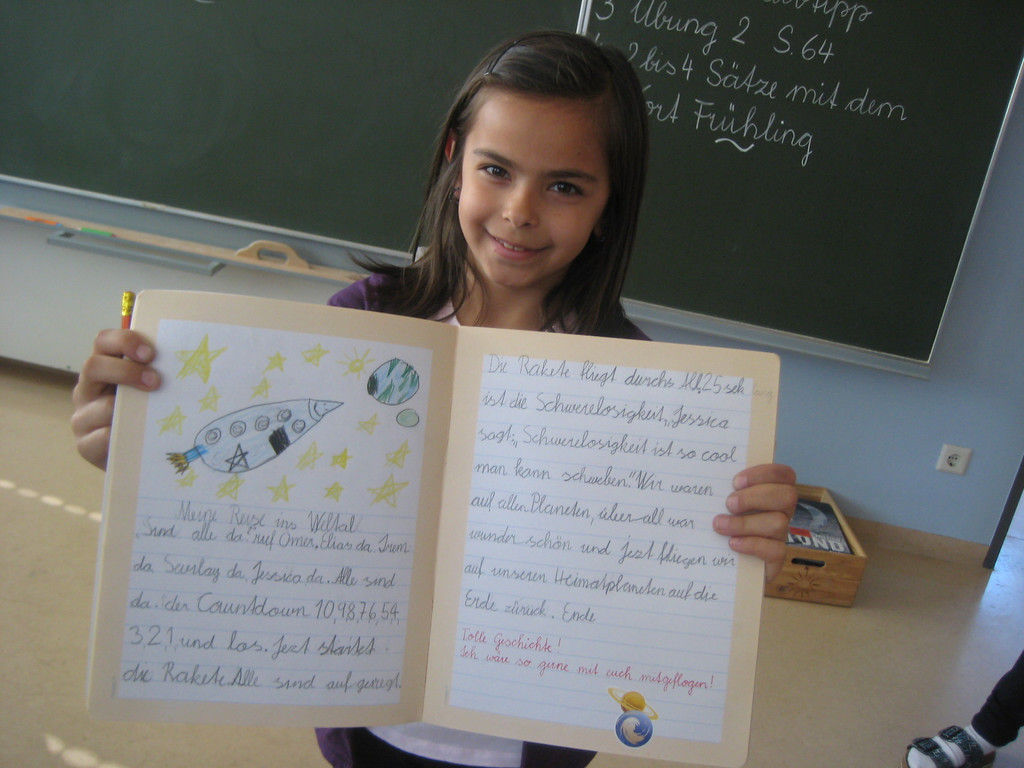 3 Übung 2 S.64
2 bis 4 Sätze mit dem
Frühling
Meine Reise ins Weltal
"Sind alle da" ruf Omer. Elias da. Irem
da Savlay da, Jessica da. Alle sind
da. der Countdown 10,9,8,7,6,5,4,
3,2,1, und los. Jezt startet
die Rakete. Alle sind aufgeregt.
Die Rakete fliegt durchs All, 25 sek
ist die Schwerelosigkeit, Jessica
sagt:„ Schwerelosigkeit ist so cool
man kann schweben." Wir waren
auf allen Planeten, über-all war
wunder schön und jezt fliegen wir
auf unseren Heimatplaneten auf die
Erde zürück. Ende
Tolle Geschichte!
Ich wäre so gerne mit euch mitgeflogen!